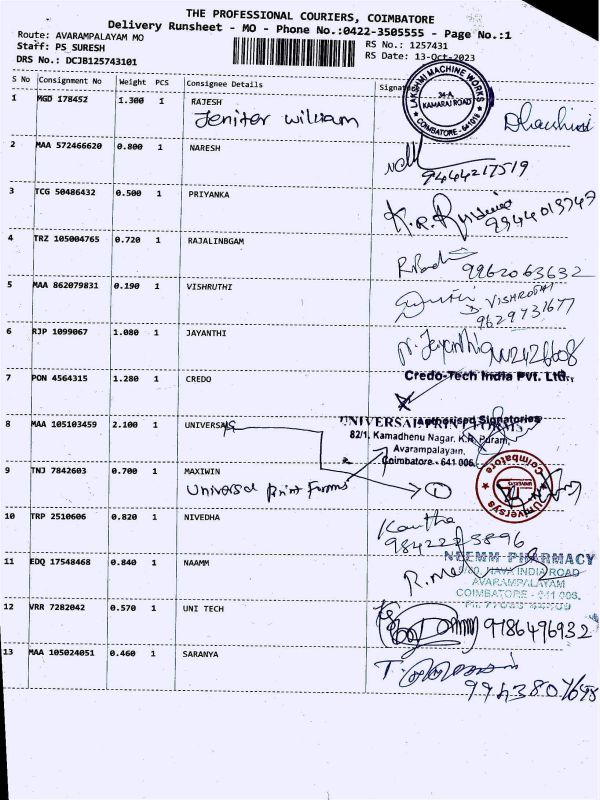 THE PROFESSIONAL COURIERS, COIMBATORE
Delivery Runsheet - MO - Phone No.:0422-3505555 - Page No.:1
Route: AVARAMPALAYAM MO
RS No.: 1257431
Staff: PS SURESH
RS Date: 13-Oct-2023
DRS No.: DCJB125743101
S No Consignment No Weight PCS Consignee Details Signature
1 MGD 178452 1.300 1 RAJESH
Jenifer william
LAKSHMI MACHINE WORKS
34-A
KAMARAJ ROAD
COIMBATORE - 641018
2 MAA 572466620 0.800 1 NARESH
9444217519
3 TCG 50486432 0.500 1 PRIYANKA
4 TRZ 105004765 0.720 1 RAJALINBGAM
9962063632
5 MAA 862079831 0.190 1 VISHRUTHI
9629731677
6 RJP 1099067 1.080 1 JAYANTHI
7 PON 4564315 1.280 1 CREDO
Credo-Tech India Pvt. Ltd.,
Authorised Signatories
8 MAA 105103459 2.100 1 UNIVERSAL
UNIVERSAL PRINT FORMS
82/1, Kamadhenu Nagar, K.R. Puram,
Avarampalayam,
Coimbatore - 641 006.
9 TNJ 7842603 0.700 1 MAXIWIN
Universal print Forms
1
Universys
Coimbatore
10 TRP 2510606 0.820 1 NIVEDHA
Kavitha
11 EDQ 17548468 0.840 1 NAAMM
NEEMM PHARMACY
NAVA INDIA ROAD
AVARAMPALAYAM
COIMBATORE - 641 006.
12 VRR 7282042 0.570 1 UNI TECH
9786496932
13 MAA 105024051 0.460 1 SARANYA